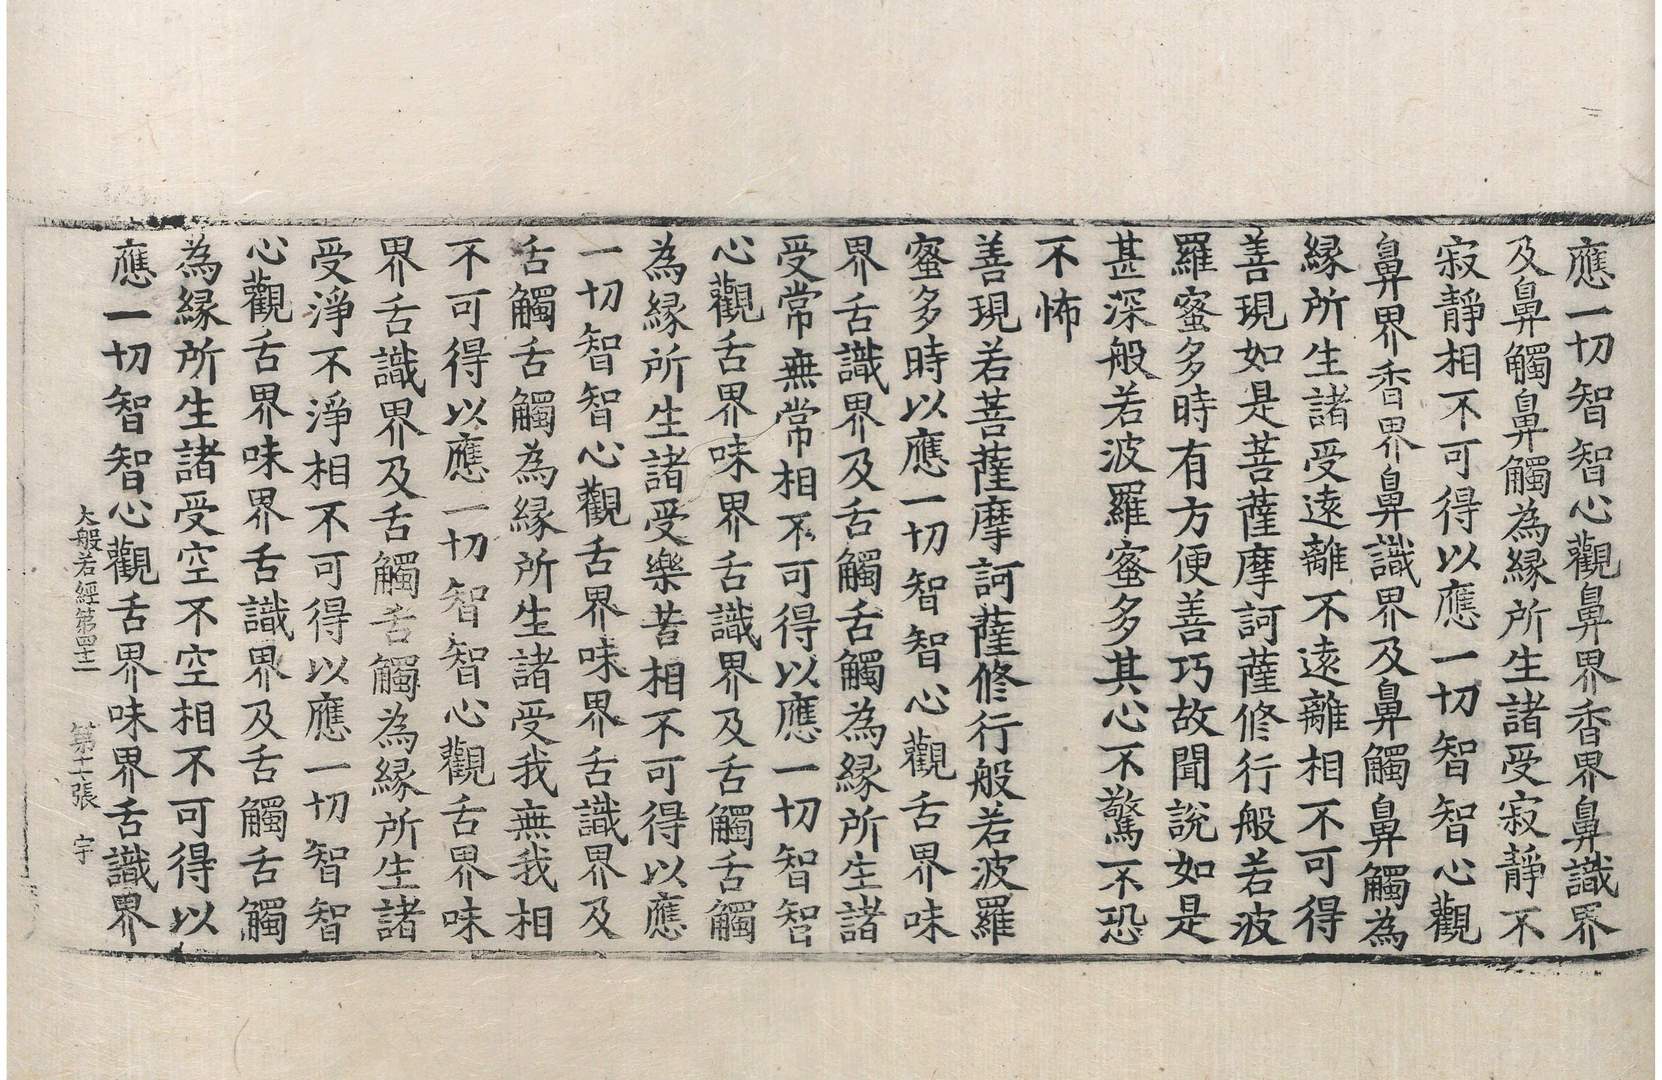 應一切智智心觀鼻界香界鼻識界
及鼻觸鼻觸為緣所生諸受寂靜不
寂靜相不可得以應一切智智心觀
鼻界香界鼻識界及鼻觸鼻觸為
緣所生諸受遠離不遠離相不可得
善現如是菩薩摩訶薩修行般若波
羅蜜多時有方便善巧故聞說如是
甚深般若波羅蜜多其心不驚不恐
不怖
善現若菩薩摩訶薩修行般若波羅
蜜多時以應一切智智心觀舌界味
界舌識界及舌觸舌觸為緣所生諸
受常無常相不可得以應一切智智
心觀舌界味界舌識界及舌觸舌觸
為緣所生諸受樂苦相不可得以應
一切智智心觀舌界味界舌識界及
舌觸舌觸為緣所生諸受我無我相
不可得以應一切智智心觀舌界味
界舌識界及舌觸舌觸為緣所生諸
受淨不淨相不可得以應一切智智
心觀舌界味界舌識界及舌觸舌觸
為緣所生諸受空不空相不可得以
應一切智智心觀舌界味界舌識界
大般若經第四十二 第十一張 宇